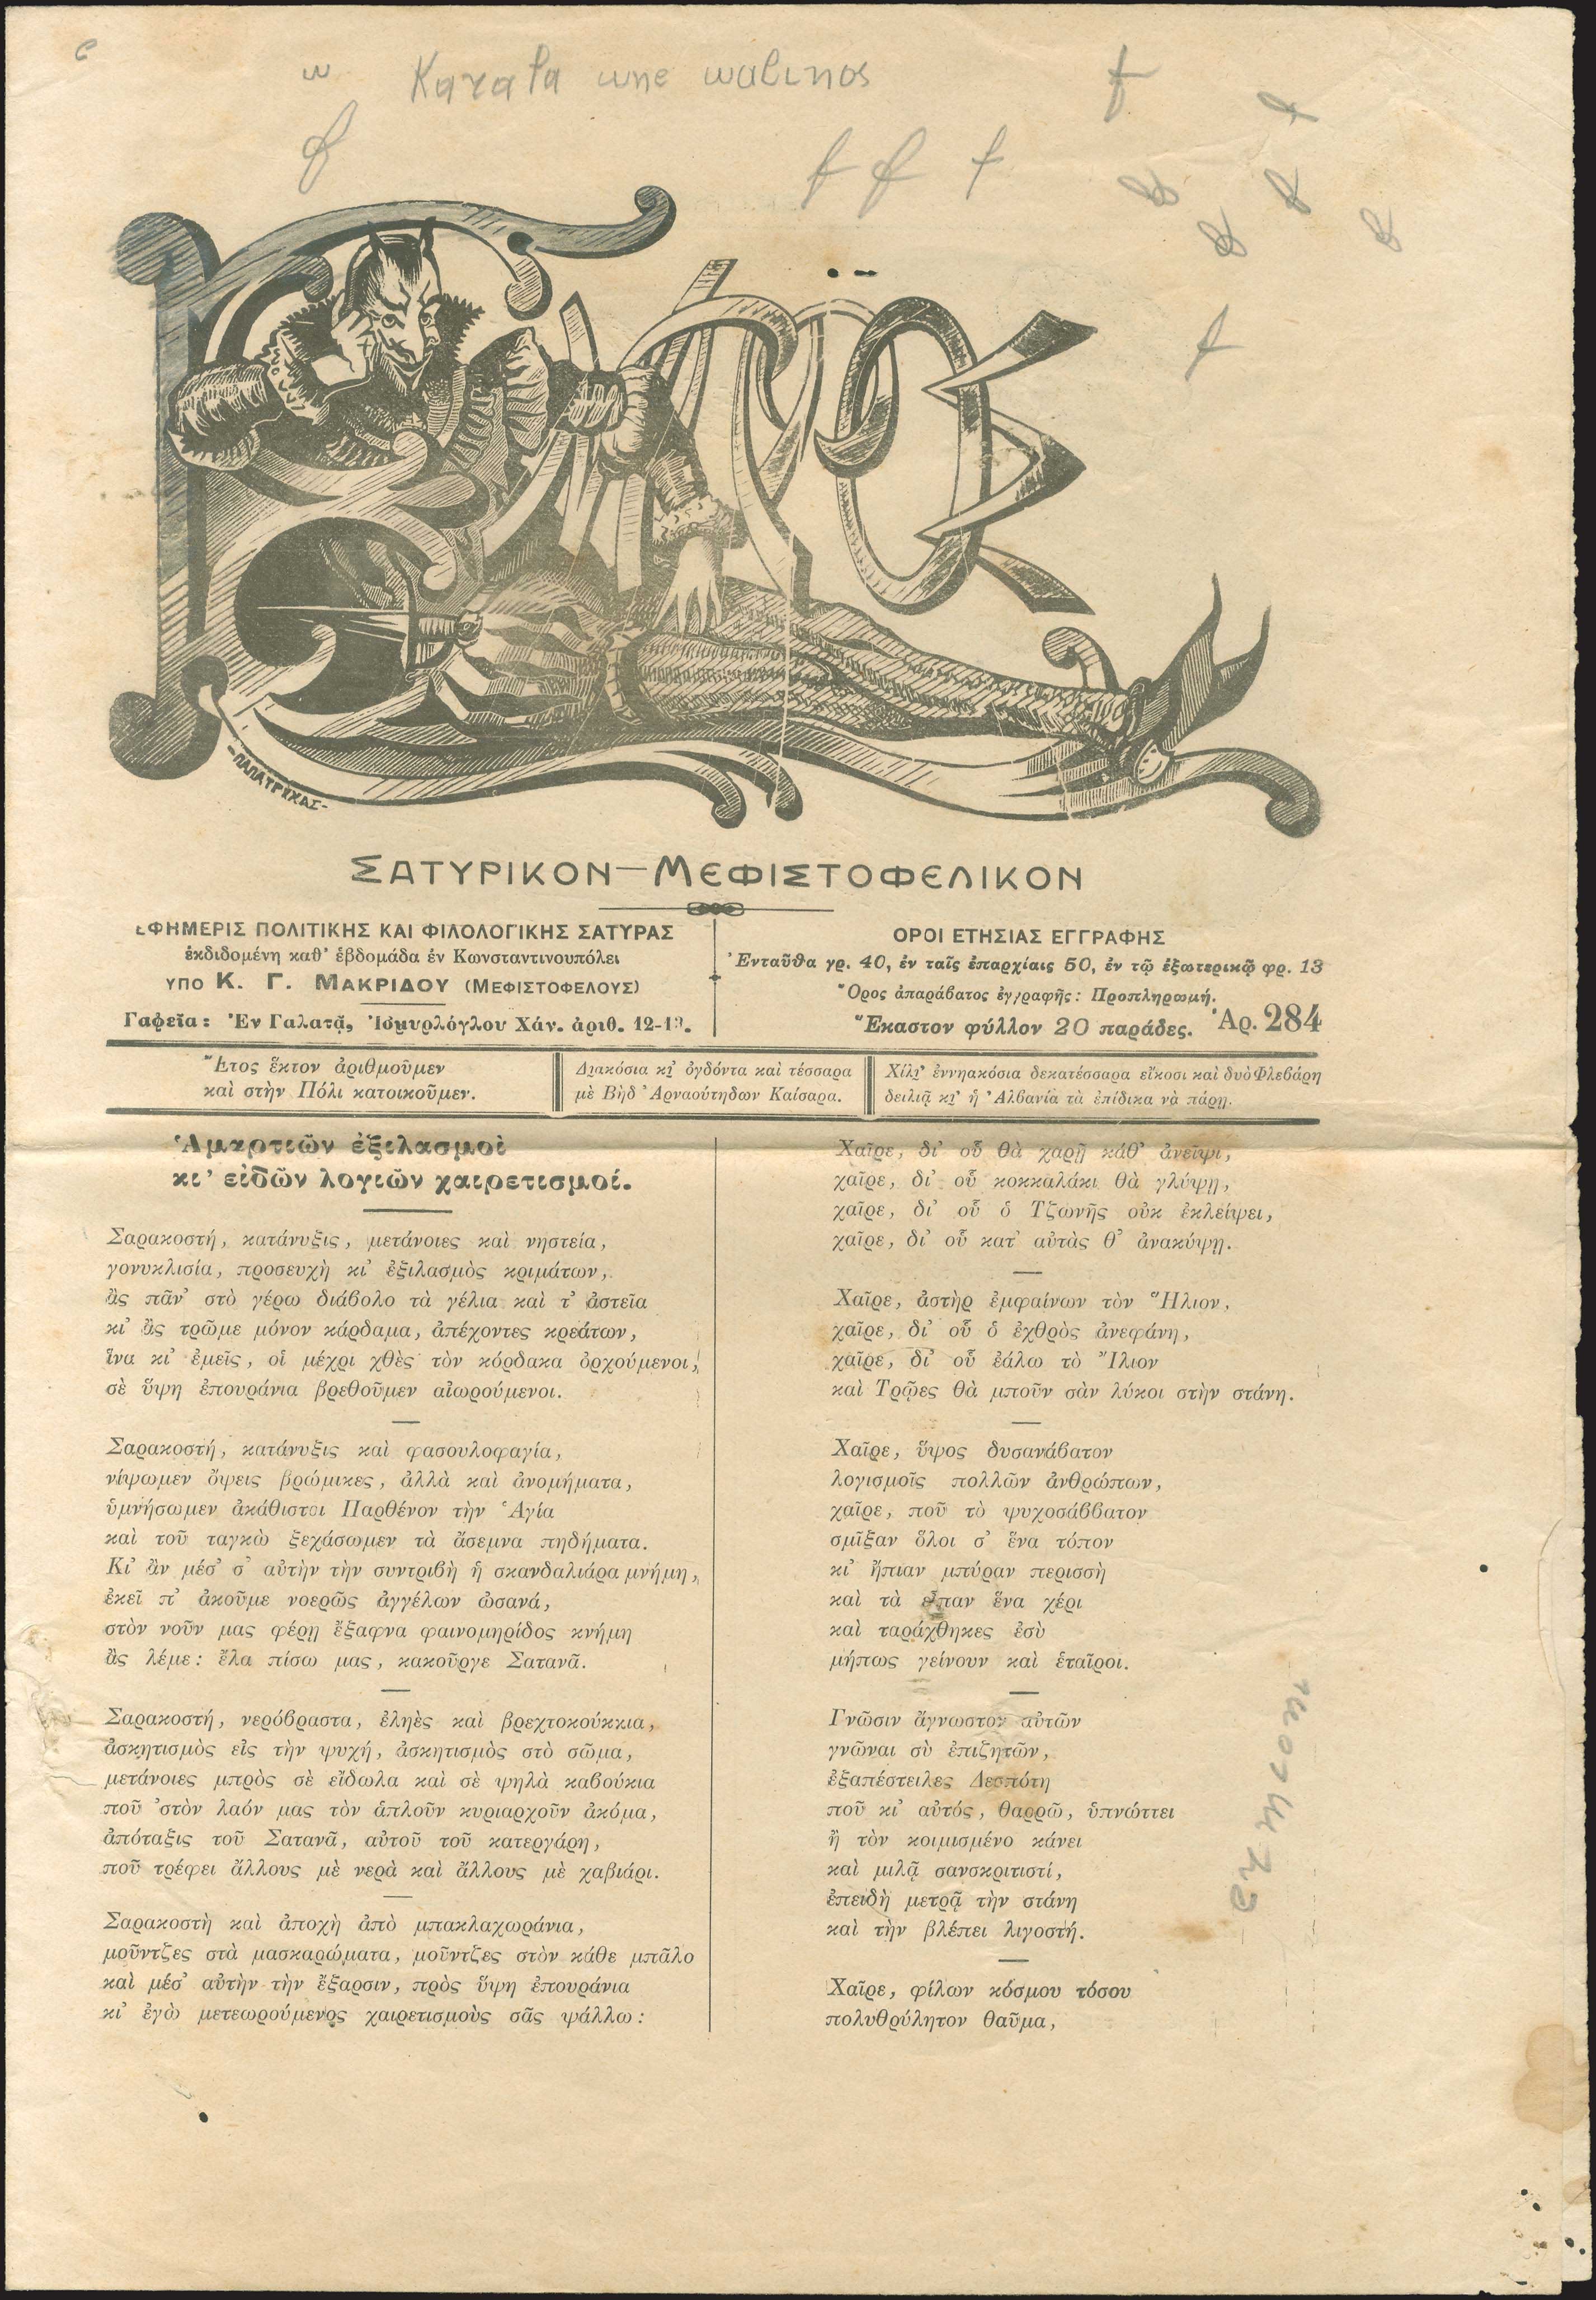 ΠΑΠΑΤΡΕΧΑΣ
ΣΑΤΥΡΙΚΟΝ—ΜΕΦΙΣΤΟΦΕΛΙΚΟΝ
ΕΦΗΜΕΡΙΣ ΠΟΛΙΤΙΚΗΣ ΚΑΙ ΦΙΛΟΛΟΓΙΚΗΣ ΣΑΤΥΡΑΣ
ἐκδιδομένη καθ' ἑβδομάδα ἐν Κωνσταντινουπόλει
ΥΠΟ Κ. Γ. ΜΑΚΡΙΔΟΥ (ΜΕΦΙΣΤΟΦΕΛΟΥΣ)
Γαφεῖα: Ἐν Γαλατᾷ, Ἰσμυρλόγλου Χάν. ἀριθ. 12-13.
ΟΡΟΙ ΕΤΗΣΙΑΣ ΕΓΓΡΑΦΗΣ
Ἐνταῦθα γρ. 40, ἐν ταῖς ἐπαρχίαις 50, ἐν τῷ ἐξωτερικῷ φρ. 13
Ὅρος ἀπαράβατος ἐγγραφῆς: Προπληρωμή.
Ἕκαστον φύλλον 20 παράδες. Ἀρ. 284
Ἔτος ἕκτον ἀριθμοῦμεν
καὶ στὴν Πόλι κατοικοῦμεν.
Διακόσια κι' ὀγδόντα καὶ τέσσαρα
μὲ Βὴδ Ἀρναούτηδων Καίσαρα.
Χίλι' ἐννηακόσια δεκατέσσαρα εἴκοσι καὶ δυὸ Φλεβάρη
δειλιᾷ κι' ἡ Ἀλβανία τὰ ἐπίδικα νὰ πάρῃ.
Ἁμαρτιῶν ἐξιλασμοὶ
κι' εἰδῶν λογιῶν χαιρετισμοί.
Σαρακοστή, κατάνυξις, μετάνοιες καὶ νηστεία,
γονυκλισία, προσευχὴ κι' ἐξιλασμὸς κριμάτων,
ἂς πᾶν' στὸ γέρω διάβολο τὰ γέλια καὶ τ' ἀστεῖα
κι' ἂς τρῶμε μόνον κάρδαμα, ἀπέχοντες κρεάτων,
ἵνα κι' ἐμεῖς, οἱ μέχρι χθὲς τὸν κόρδακα ὀρχούμενοι,
σὲ ὕψη ἐπουράνια βρεθοῦμεν αἰωρούμενοι.
Σαρακοστή, κατάνυξις καὶ φασουλοφαγία,
νίψωμεν ὄψεις βρώμικες, ἀλλὰ καὶ ἀνομήματα,
ὑμνήσωμεν ἀκάθιστοι Παρθένον τὴν Ἁγία
καὶ τοῦ ταγκὼ ξεχάσωμεν τὰ ἄσεμνα πηδήματα.
Κι' ἂν μέσ' σ' αὐτὴν τὴν συντριβὴ ἡ σκανδαλιάρα μνήμη,
ἐκεῖ π' ἀκοῦμε νοερῶς ἀγγέλων ὡσανά,
στὸν νοῦν μας φέρῃ ἔξαφνα φαινομηρίδος κνήμη
ἂς λέμε: ἔλα πίσω μας, κακοῦργε Σατανᾶ.
Σαρακοστή, νερόβραστα, ἐληὲς καὶ βρεχτοκούκκια,
ἀσκητισμὸς εἰς τὴν ψυχή, ἀσκητισμὸς στὸ σῶμα,
μετάνοιες μπρὸς σὲ εἴδωλα καὶ σὲ ψηλὰ καβούκια
ποῦ 'στὸν λαόν μας τὸν ἁπλοῦν κυριαρχοῦν ἀκόμα,
ἀπόταξις τοῦ Σατανᾶ, αὐτοῦ τοῦ κατεργάρη,
ποῦ τρέφει ἄλλους μὲ νερὰ καὶ ἄλλους μὲ χαβιάρι.
Σαρακοστὴ καὶ ἀποχὴ ἀπὸ μπακλαχωράνια,
μοῦντζες στὰ μασκαρώματα, μοῦντζες στὸν κάθε μπᾶλο
καὶ μέσ' αὐτὴν τὴν ἔξαρσιν, πρὸς ὕψη ἐπουράνια
κι' ἐγὼ μετεωρούμενος χαιρετισμοὺς σᾶς ψάλλω:
Χαῖρε, δι' οὗ θὰ χαρῇ κάθ' ἀνεῖψι,
χαῖρε, δι' οὗ κοκκαλάκι θὰ γλύψῃ,
χαῖρε, δι' οὗ ὁ Τζωνῆς οὐκ ἐκλείψει,
χαῖρε, δι' οὗ κατ' αὐτὰς θ' ἀνακύψῃ.
Χαῖρε, ἀστὴρ ἐμφαίνων τὸν Ἥλιον,
χαῖρε, δι' οὗ ὁ ἐχθρὸς ἀνεφάνη,
χαῖρε, δι' οὗ ἑάλω τὸ Ἴλιον
καὶ Τρῷες θὰ μποῦν σὰν λύκοι στὴν στάνη.
Χαῖρε, ὕψος δυσανάβατον
λογισμοῖς πολλῶν ἀνθρώπων,
χαῖρε, ποῦ τὸ ψυχοσάββατον
σμῖξαν ὅλοι σ' ἕνα τόπον
κι' ἤπιαν μπύραν περισσὴ
καὶ τὰ εἶπαν ἕνα χέρι
καὶ ταράχθηκες ἐσὺ
μήπως γείνουν καὶ ἑταῖροι.
Γνῶσιν ἄγνωστον αὐτῶν
γνῶναι σὺ ἐπιζητῶν,
ἐξαπέστειλες Δεσπότη
ποῦ κι' αὐτός, θαρρῶ, ὑπνώττει
ἢ τὸν κοιμισμένο κάνει
καὶ μιλᾷ σανσκριτιστί,
ἐπειδὴ μετρᾷ τὴν στάνη
καὶ τὴν βλέπει λιγοστή.
Χαῖρε, φίλων κόσμου τόσου
πολυθρύλητον θαῦμα,